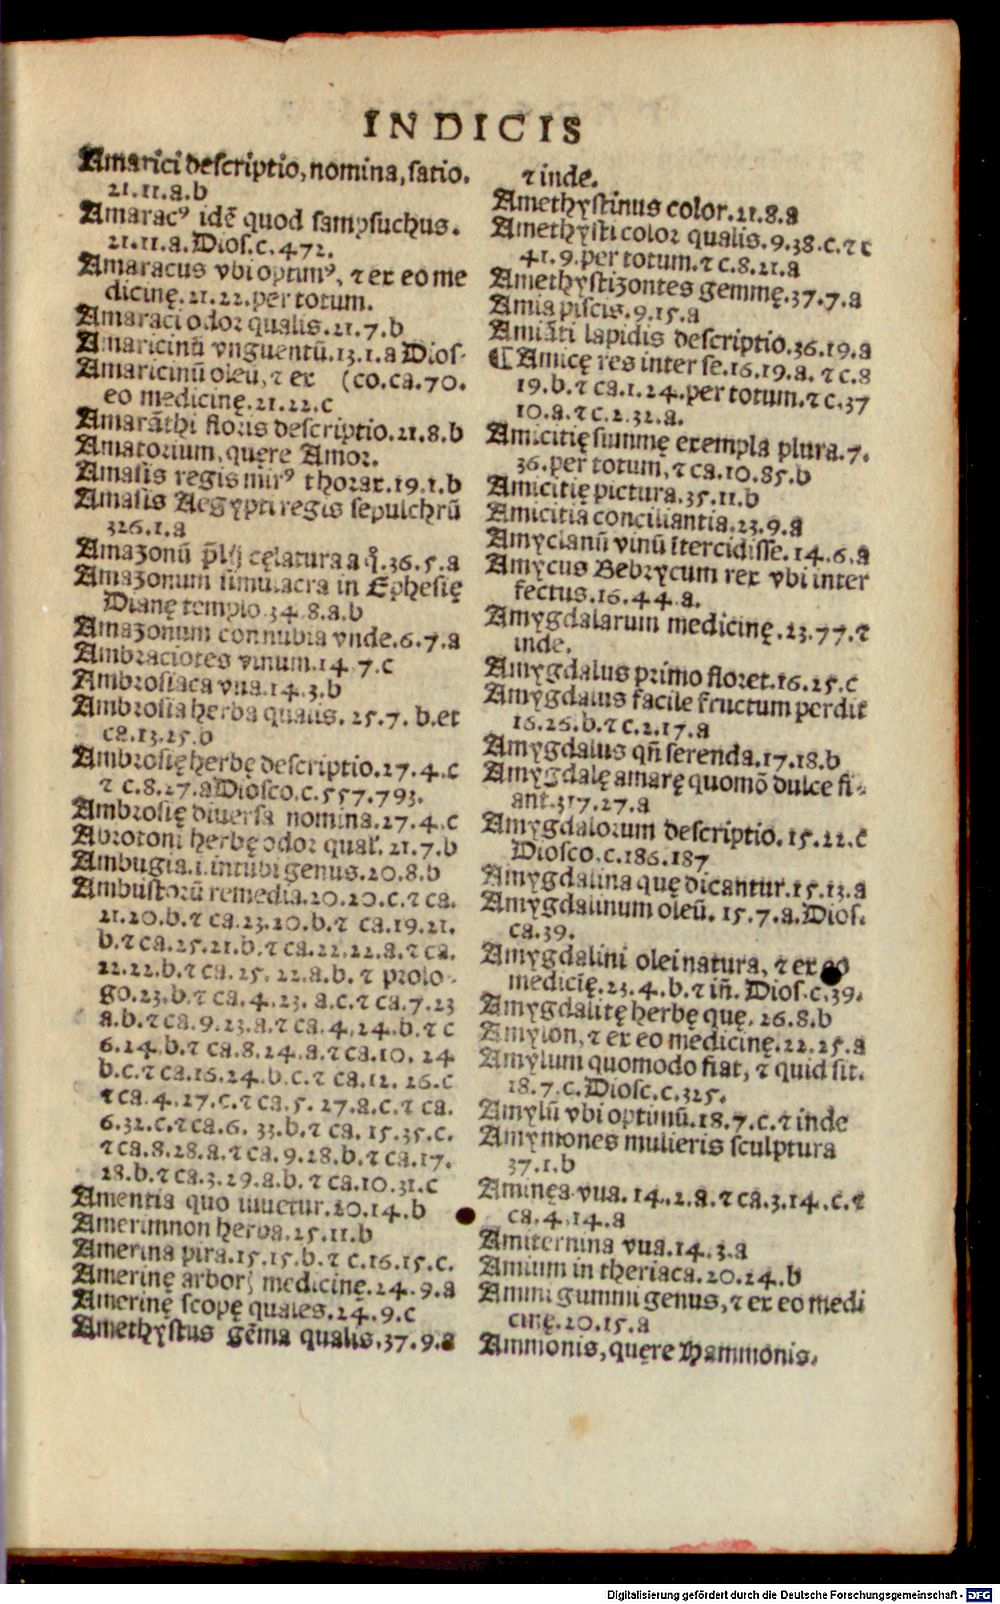 INDICIS
Amarici descriptio, nomina, satio.
21.11.a.b
Amaracꝰ idē quod sampsuchus.
21.11.a. Dios.c.472.
Amaracus vbi optimꝰ, ⁊ ex eo me
dicinę.21.22.per totum.
Amaraci odor qualis.21.7.b
Amaricinū vnguentū.13.1.a Dios-
Amaricinū oleū, ⁊ ex (co.ca.70.
eo medicinę.21.22.c
Amarāthi floris descriptio.21.8.b
Amatorium, quęre Amor.
Amasis regis mirꝰ thorax.19.1.b
Amasis Aegypti regis sepulchrū
326.1.a
Amazonū p̄lij cęlatura a q̊.36.5.a
Amazonum simulacra in Ephesię
Dianę templo.34.8.a.b
Amazonum connubia vnde.6.7.a
Ambraciotes vinum.14.7.c
Ambrosiaca vua.14.3.b
Ambrosia herba qualis. 25.7. b.et
ca.13.25.b
Ambrosię herbę descriptio.27.4.c
⁊ c.8.27.a Diosco.c.557.793.
Ambrosię diuersa nomina.27.4.c
Abrotoni herbę odor qual'. 21.7.b
Ambugia.i.intubi genus.20.8.b
Ambustorū remedia.20.20.c.⁊ ca.
21.20.b.⁊ ca.23.20.b.⁊ ca.19.21.
b.⁊ ca.25.21.b.⁊ ca.22.22.a.⁊ ca.
22.22.b.⁊ ca.25. 22.a.b. ⁊ prolo-
go.23.b.⁊ ca.4.23. a.c.⁊ ca.7.23
a.b.⁊ ca.9.23.a.⁊ ca.4.24.b.⁊ c
6.24.b.⁊ ca.8.24.a.⁊ ca.10. 24
b.c.⁊ ca.16.24.b.c.⁊ ca.12. 26.c
⁊ ca.4.27.c.⁊ ca.5. 27.a.c.⁊ ca.
6.32.c.⁊ ca.6. 33.b.⁊ ca. 15.35.c.
⁊ ca.8.28.a.⁊ ca.9.28.b.⁊ ca.17.
28.b.⁊ ca.3.29.a.b.⁊ ca.10.31.c
Amentia quo iuuetur.20.14.b
Amerimnon herba.25.11.b
Amerina pira.15.15.b.⁊ c.16.15.c.
Amerinę arborꝭ medicinę.24.9.a
Amerinę scopę quales.24.9.c
Amethystus gēma qualis.37.9.a
⁊ inde.
Amethystinus color.21.8.a
Amethysti color qualis.9.38.c.⁊ c
41.9.per totum.⁊ c.8.21.a
Amethystizontes gemmę.37.7.a
Amia piscis.9.15.a
Amiāti lapidis descriptio.36.19.a
¶ Amicę res inter se.16.19.a. ⁊ c.8
19.b.⁊ ca.1.24.per totum.⁊ c.37
10.a.⁊ c.2.32.a.
Amicitię summę exempla plura.7.
36.per totum, ⁊ ca.10.85.b
Amicitię pictura.35.11.b
Amicitia conciliantia.23.9.a
Amyclanū vinū ītercidisse.14.6.a
Amycus Bebrycum rex vbi inter
fectus.16.44.a.
Amygdalarum medicinę.23.77.⁊
inde.
Amygdalus primo floret.16.25.c
Amygdalus facile fructum perdit
16.26.b.⁊ c.2.17.a
Amygdalus qn̄ serenda.17.18.b
Amygdalę amarę quomō dulce fi-
ant.317.27.a
Amygdalorum descriptio.15.22.c
Diosco.c.186.187
Amygdalina quę dicantur.15.13.a
Amygdalinum oleū. 15.7.a.Dios.
ca.39.
Amygdalini olei natura, ⁊ ex eo
medicię.23.4.b.⁊ in̄. Dios.c.39.
Amygdalitę herbę quę. 26.8.b
Amylon, ⁊ ex eo medicinę.22.25.a
Amylum quomodo fiat, ⁊ quid sit.
18.7.c.Diosc.c.325.
Amylū vbi optimū.18.7.c.⁊ inde
Amymones mulieris sculptura
37.1.b
Aminęa vua. 14.2.a.⁊ ca.3.14.c.⁊
ca.4.14.a
Amiternina vua.14.3.a
Amium in theriaca.20.24.b
Ammi gummi genus, ⁊ ex eo medi
cinę.20.15.a
Ammonis, quęre Hammonis.
Digitalisierung gefördert durch die Deutsche Forschungsgemeinschaft - DFG